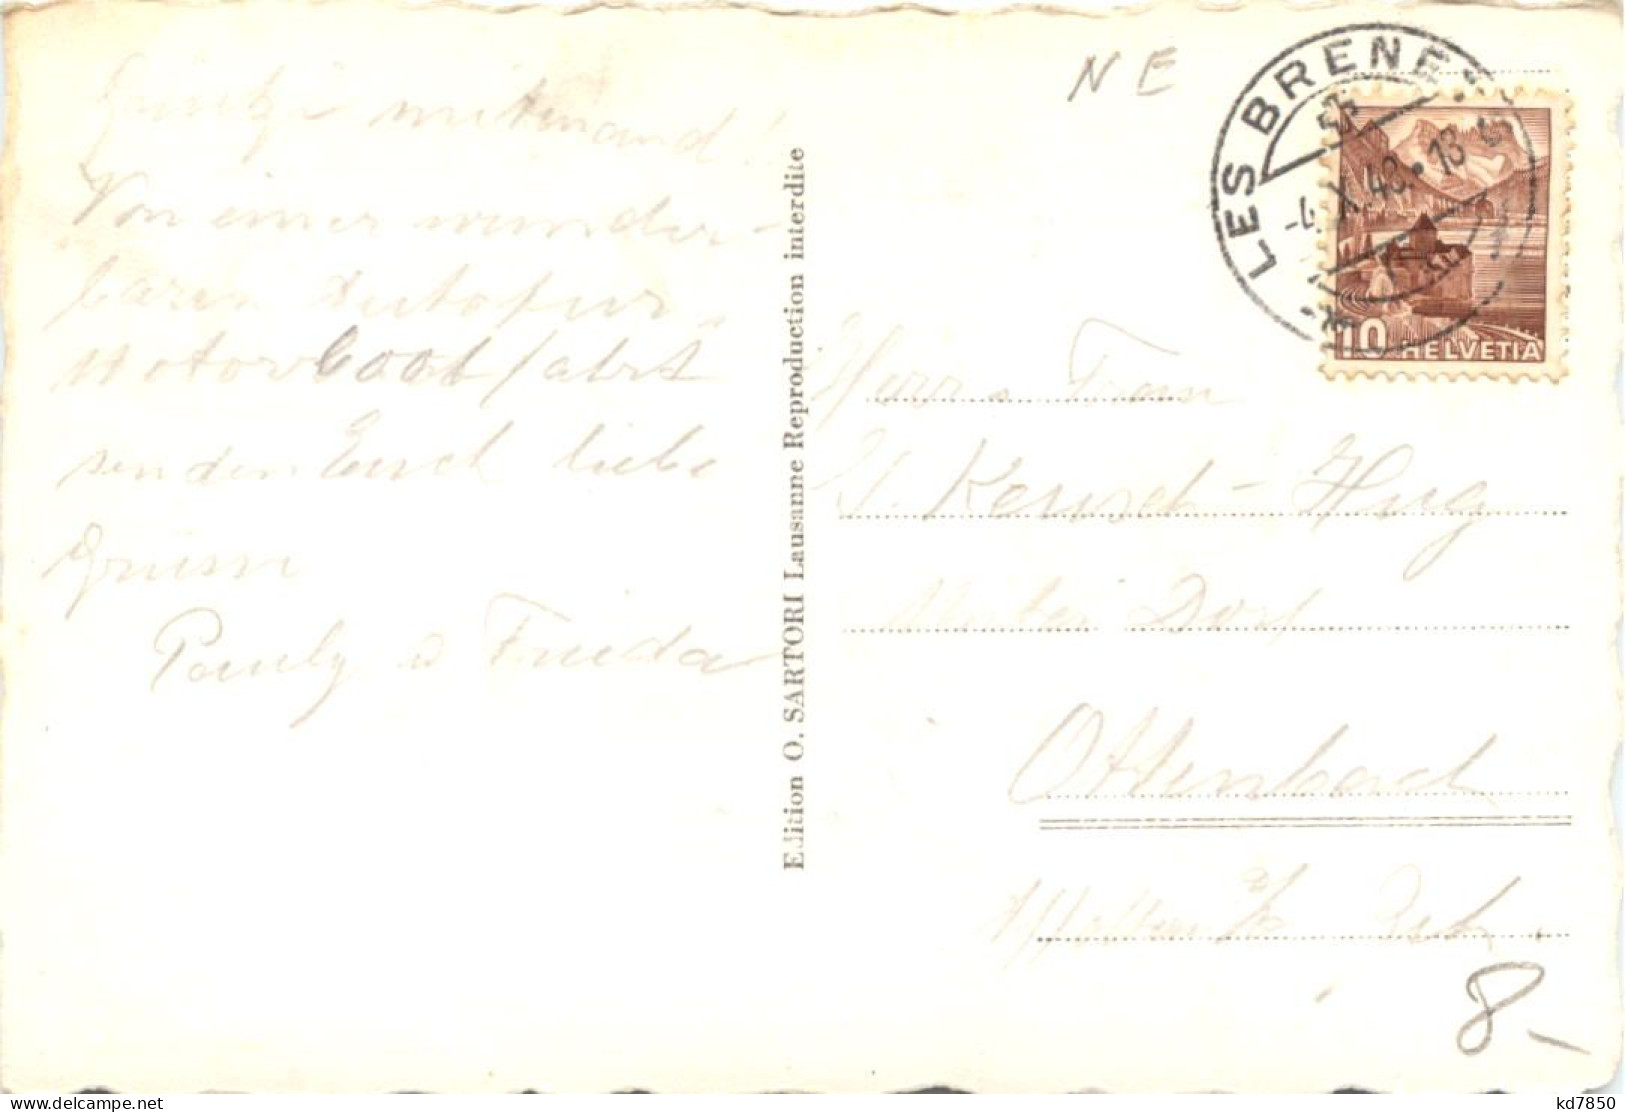 Grüetzi mitenand!
Von einer wunder-
baren Autotour u.
Motorbootfahrt
senden Euch liebe
Grüsse
Pauly u Frieda
Edition O. SARTORI Lausanne Reproduction interdite
NE
LES BRENETS
-4.X.48.-18
10 HELVETIA
Herr u. Frau
Keusch-Hug
Dorf
Ottenbach
Zch.
8.-
kd7850